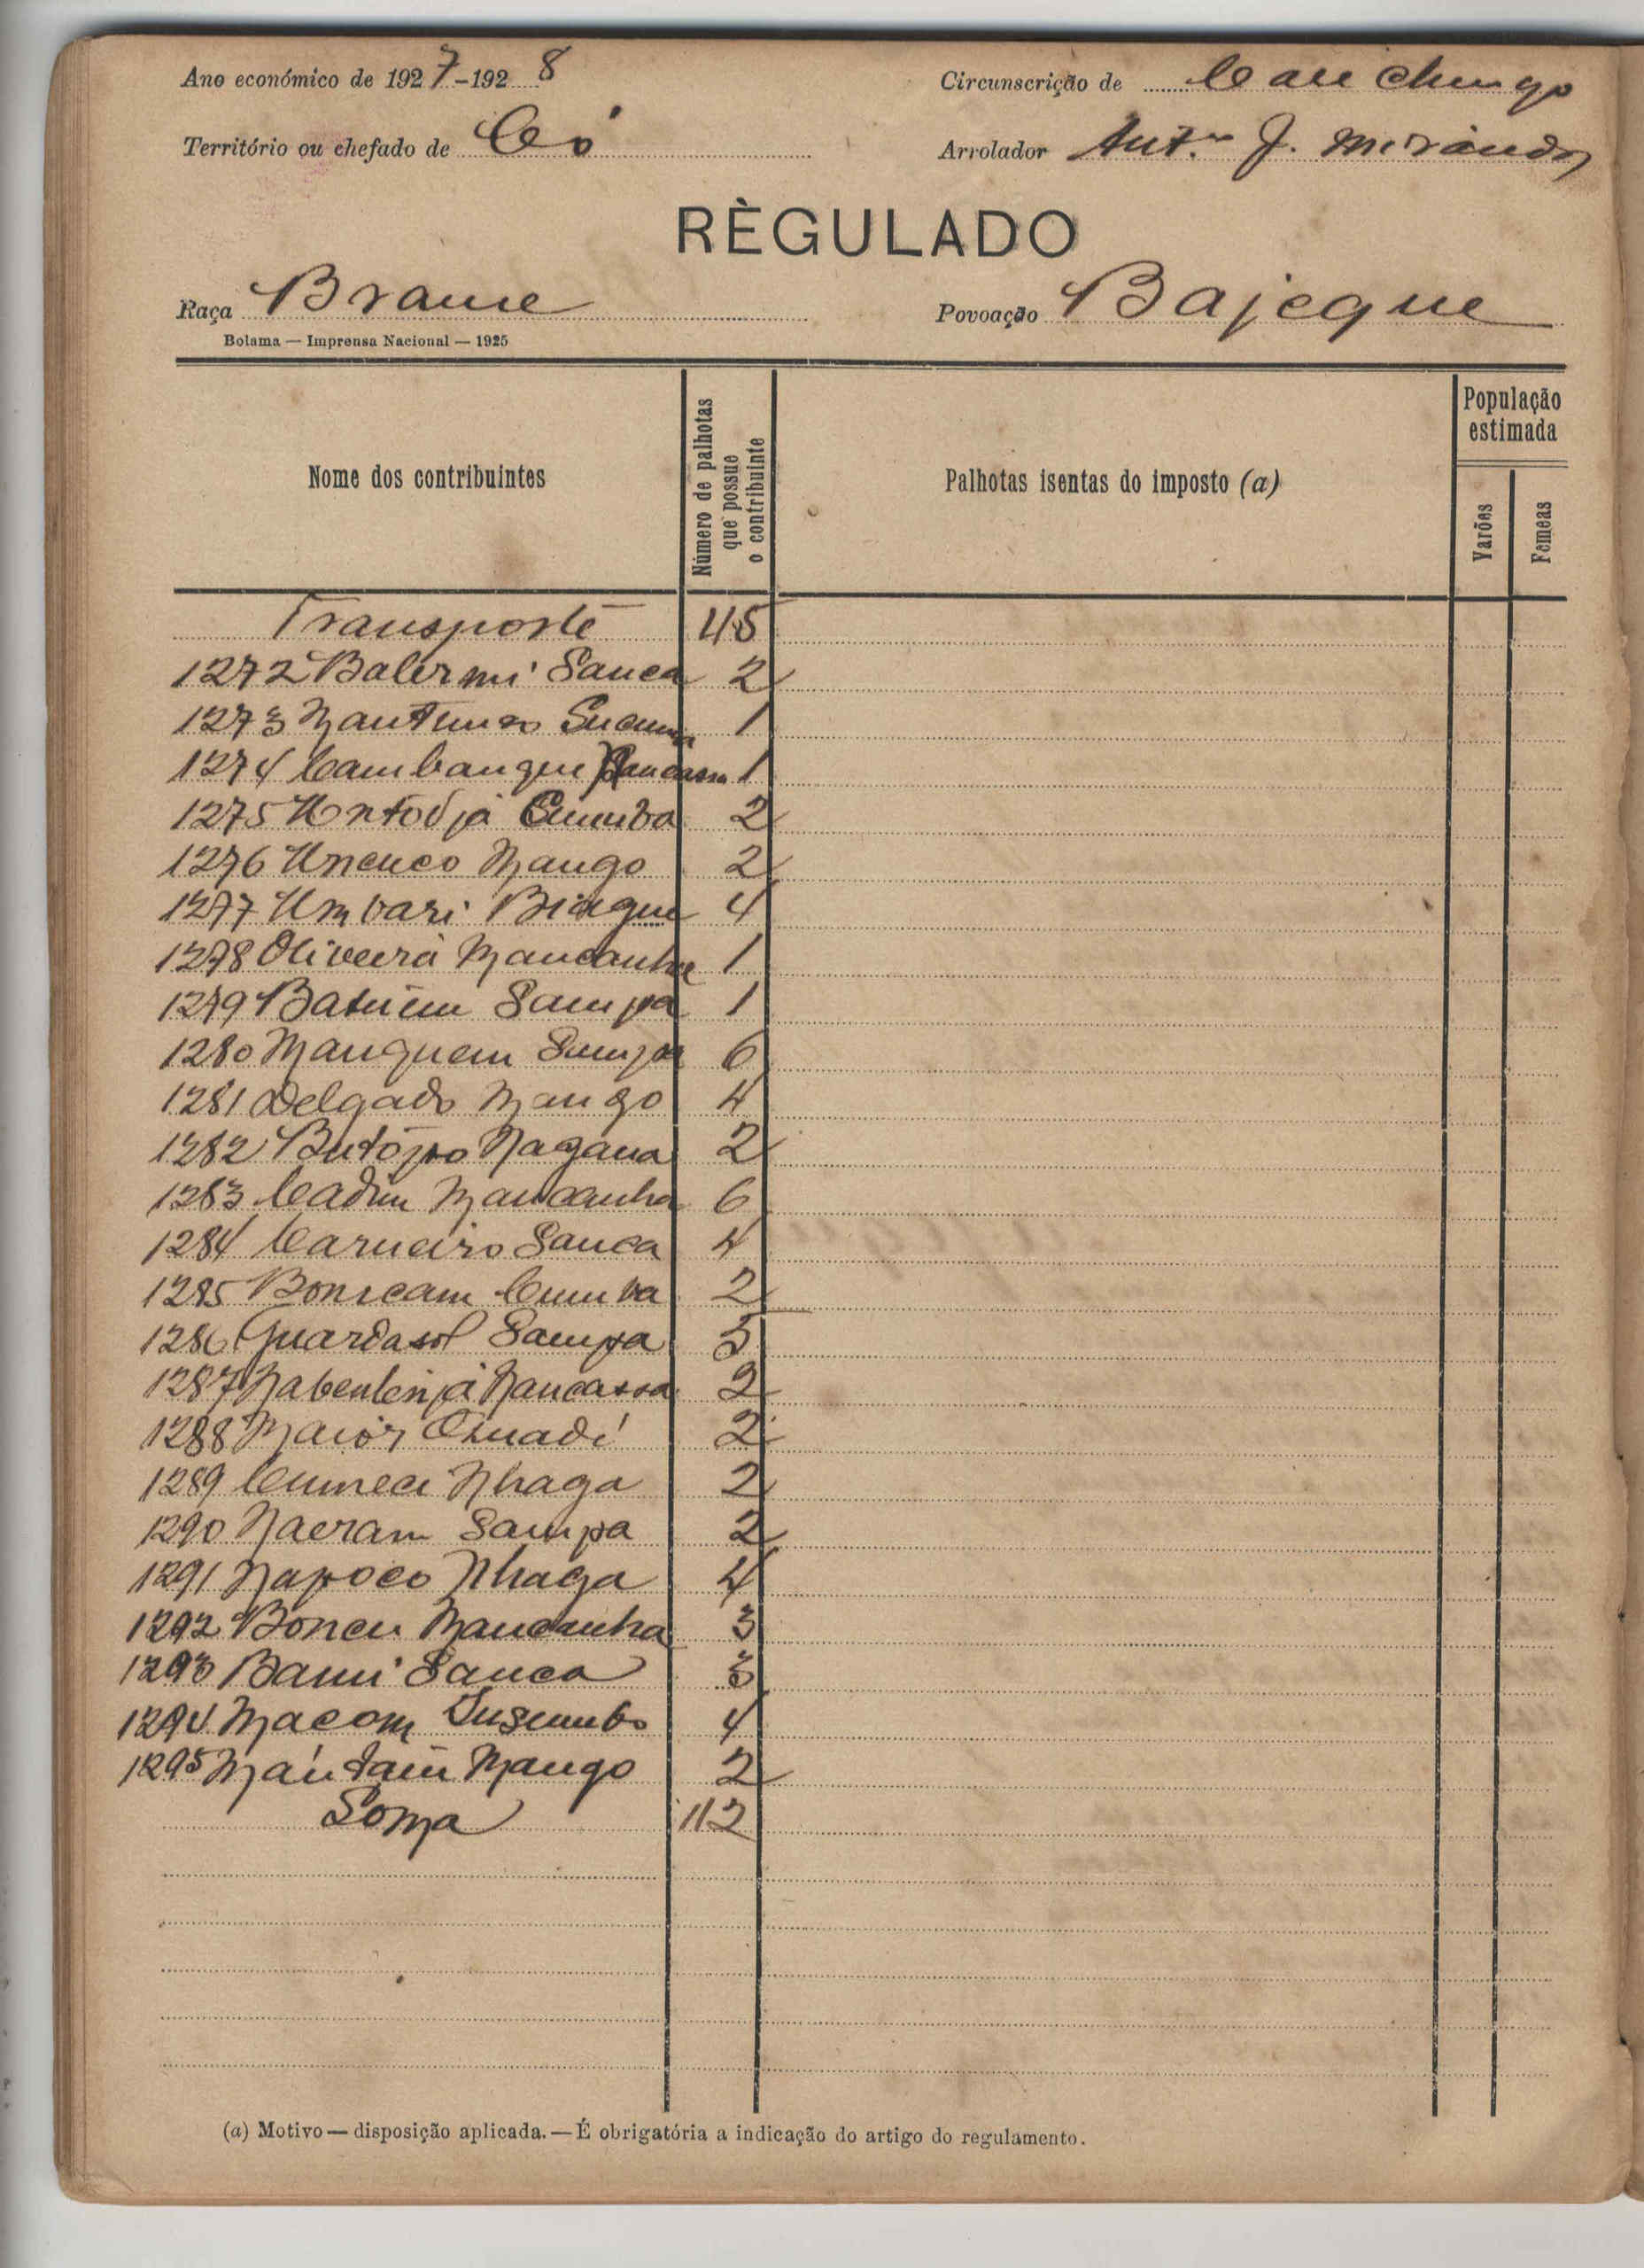 Ano económico de 1927-1928 Circunscrição de Canchungo
Território ou chefado de Có Arrolador Antº J. Miranda
RÈGULADO
Raça Brame Povoação Bajeque
Bolama — Imprensa Nacional — 1925
Nome dos contribuintes
Número de palhotas que possue o contribuinte
Palhotas isentas do imposto (a)
População estimada
Varões
Femeas
Transporte 45
1272 Balermi Sanca 2
1273 1
1274 Cambanque 1
1275 Untodjá Cumba 2
1276 Uncuco Mango 2
1277 Umbari Biague 4
1278 Oliveira Mancanha 1
1279 Batuim Sampa 1
1280 Manquem Sampa 6
1281 Delgado Mango 4
1282 Butópo Nagana 2
1283 Cadim Mancanha 6
1284 Carneiro Sanca 4
1285 Bonicam Cumba 2
1286 Guardasol Sampa 5
1287 Nancassa 2
1288 Maior 2
1289 Nhaga 2
1290 Nacram Sampa 2
1291 Napoco Nhaga 4
1292 Boncu Mancanha 3
1293 Bami Sanca 3
1294 Macom 4
1295 Mango 2
Soma 112
(a) Motivo — disposição aplicada. — É obrigatória a indicação do artigo do regulamento.